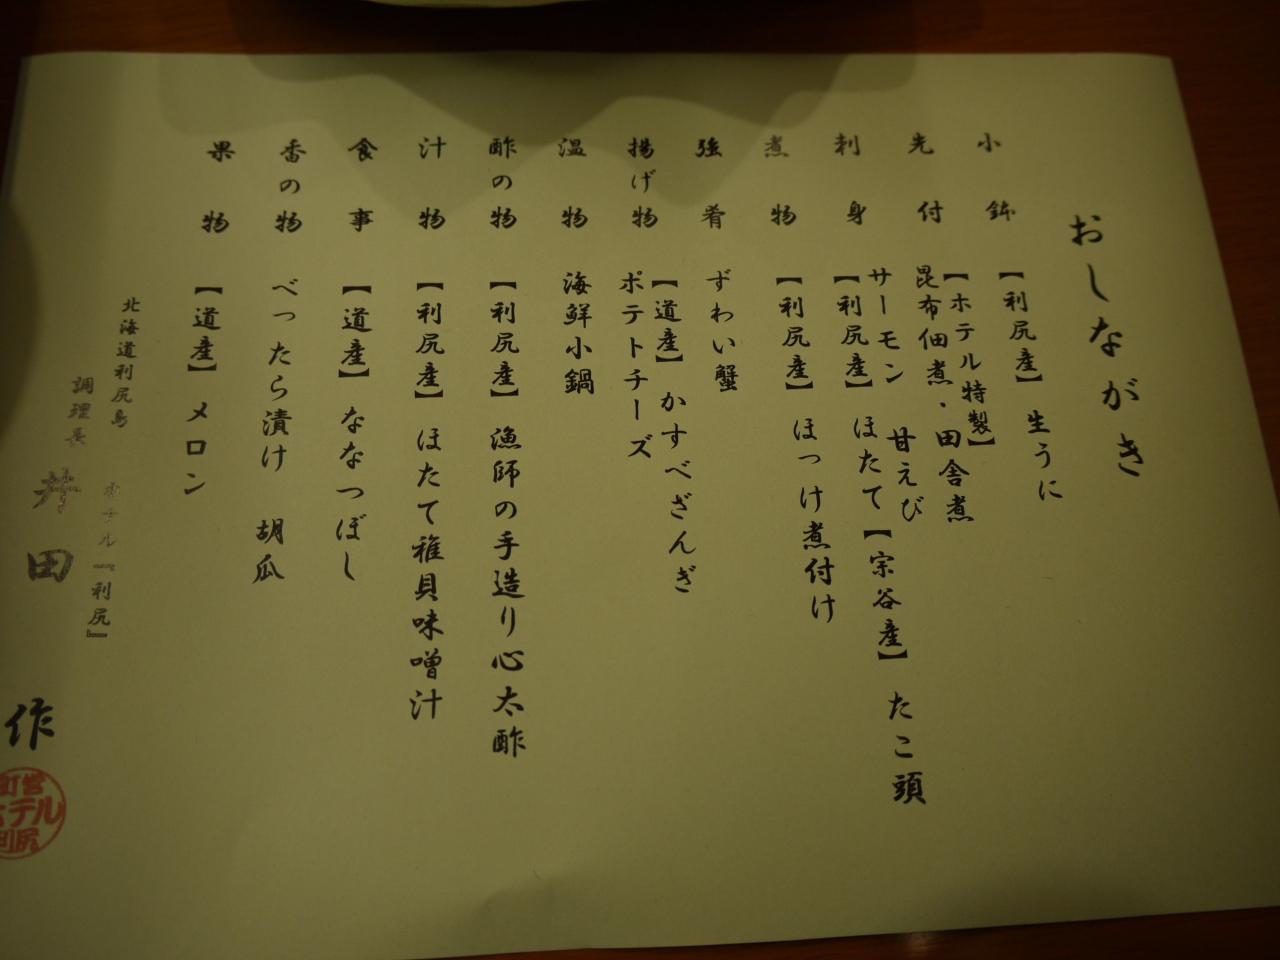 おしながき
小鉢 【利尻産】 生うに
先付 【ホテル特製】
昆布佃煮・田舎煮
刺身 サーモン 甘えび
【利尻産】 ほたて 【宗谷産】 たこ頭
煮物 【利尻産】 ほっけ煮付け
強肴 ずわい蟹
揚げ物 【道産】 かすべざんぎ
ポテトチーズ
温物 海鮮小鍋
酢の物 【利尻産】 漁師の手造り心太酢
汁物 【利尻産】 ほたて稚貝味噌汁
食事 【道産】 ななつぼし
香の物 べったら漬け 胡瓜
果物 【道産】 メロン
北海道利尻島
ホテル『利尻』
調理長 井田 作
町営
ホテル
利尻